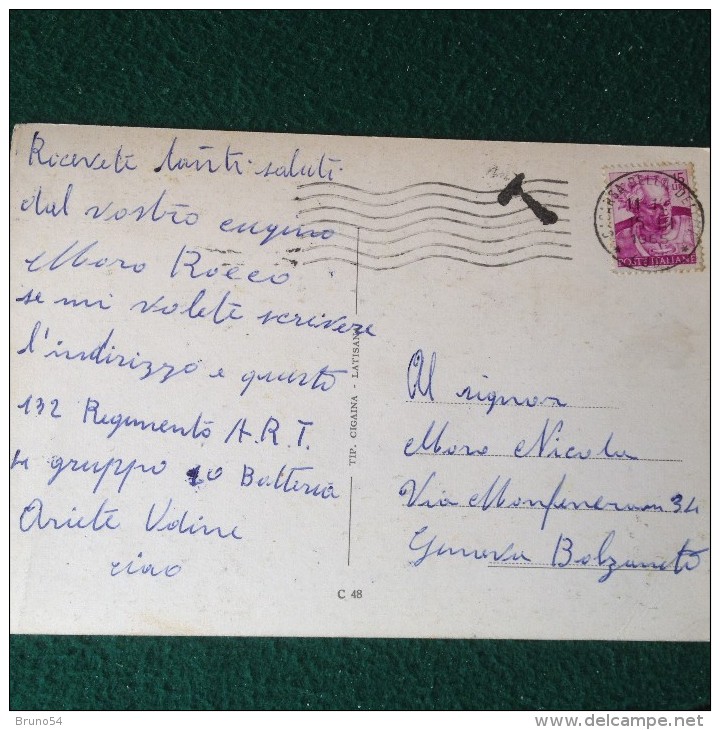 Ricevete tanti saluti
dal vostro cugino
Moro Rocco
se mi volete scrivere
l'indirizzo e questo
132 Regimento A.R.T.
gruppo 10 Batteria
Ariete Udine
ciao
TIP. CIGAINA - LATISANA
C 48
15
POSTE ITALIANE
Al signor
Moro Nicola
Via 34
Genova Bolzaneto
Bruno54
delcampe.net